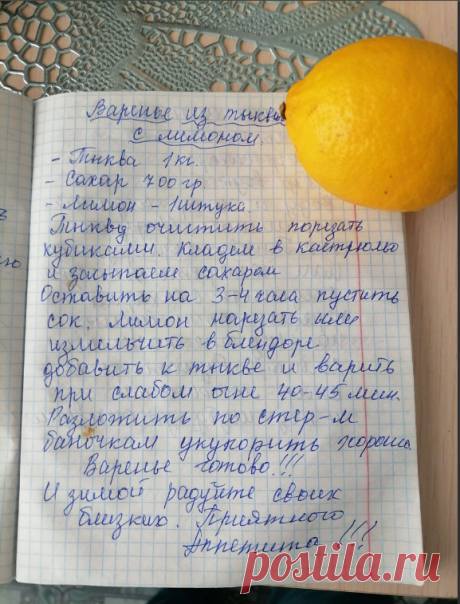 Варенье из тыквы
с лимоном.
- Тыква 1 кг.
- Сахар 700 гр.
- Лимон - 1 штука.
Тыкву очистить порезать
кубиками. Кладем в кастрюлю
и засыпаем сахаром
Оставить на 3-4 часа пустить
сок. Лимон нарезать или
измельчить в блендоре
добавить к тыкве и варить
при слабом огне 40-45 мин.
Разложить по стер-м
баночкам укупорить хорошо.
Варенье готово!!!
И зимой радуйте своих
близких. Приятного
Аппетита !!!
postila.ru